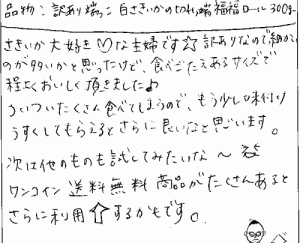 品物: 訳あり端っこ 白さきいかの切れ端福福ロール300g
さきいか大好き♡な主婦です☆訳ありなので細かい
のが多いかと思ったけど、食べごたえあるサイズで
程よくおいしく頂きました♪
ついついたくさん食べてしまうので、もう少し味付け
うすくしてもらえるとさらに良いなと思います。
次は他のものも試してみたいな〜
ワンコイン 送料無料 商品がたくさんあると
さらに利用⇧するかもです。